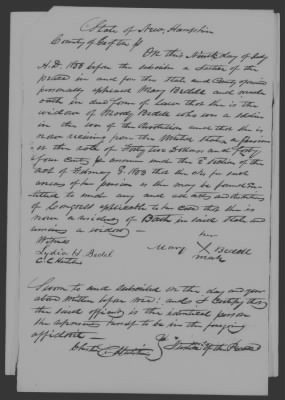 State of New Hampshire
County of Grafton ss
On this Ninth day of July
A.D. 1853 before the subscriber a Justice of the
peace in and for the State and County aforesaid
personally appeared Mary Bedell and made
oath in due form of Law that she is the
widow of Moody Bedell who was a soldier
in the war of the Revolution and that she is
now receiving from the United States a pension
at the rate of Forty two Dollars and
cents per annum under the 2 section of the
act of February 3 1853 that she
of her pension as she may be found
titled to under any and all acts and
of Congress applicable to her case that she is
now a resident of Bath in said State and
remains a widow
Witness her
Lydia H Bedel Mary X Bedell
mark
Sworn to and subscribed on the day and year
above written before me: and I Certify that
the said affiant is the identical person
she represents herself to be in the foregoing
affidavit
Justice of the Peace